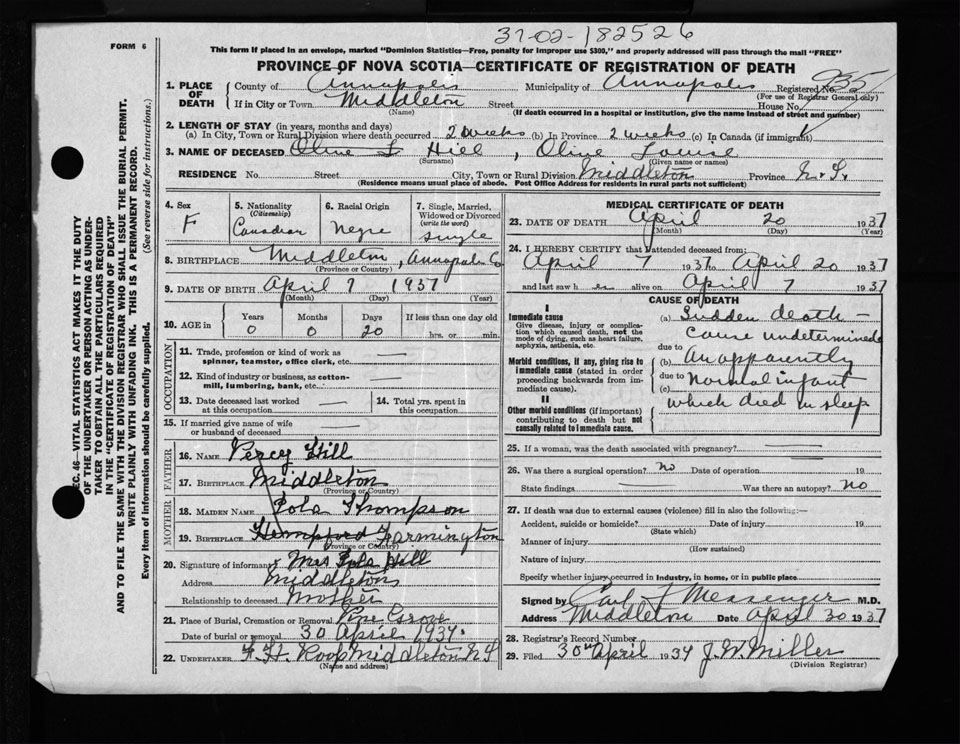 37-02-182526
FORM 6
This form if placed in an envelope, marked "Dominion Statistics—Free, penalty for improper use $300," and properly addressed will pass through the mail "FREE"
PROVINCE OF NOVA SCOTIA—CERTIFICATE OF REGISTRATION OF DEATH
1. PLACE OF DEATH
County of Annapolis Municipality of Annapolis Registered No. 935
(For use of Registrar General only)
If in City or Town Middleton Street House No.
(Name) (If death occurred in a hospital or institution, give the name instead of street and number)
2. LENGTH OF STAY (in years, months and days)
(a) In City, Town or Rural Division where death occurred 2 weeks (b) In Province 2 weeks (c) In Canada (if immigrant)
3. NAME OF DECEASED Olive L Hill, Olive Louise
(Surname) (Given name or names)
RESIDENCE No. Street City, Town or Rural Division Middleton Province N.S.
(Residence means usual place of abode. Post Office Address for residents in rural parts not sufficient)
4. Sex
F
5. Nationality
(Citizenship)
Canadian
6. Racial Origin
Negro
7. Single, Married, Widowed or Divorced
(write the word)
Single
8. BIRTHPLACE Middleton, Annapolis Co
(Province or Country)
9. DATE OF BIRTH April 7 1937
(Month) (Day) (Year)
10. AGE in
Years Months Days If less than one day old
0 0 20 hrs. or min.
OCCUPATION
11. Trade, profession or kind of work as spinner, teamster, office clerk, etc. —
12. Kind of industry or business, as cotton-mill, lumbering, bank, etc. —
13. Date deceased last worked at this occupation —
14. Total yrs. spent in this occupation
15. If married give name of wife or husband of deceased
FATHER
16. NAME Percy Hill
17. BIRTHPLACE Middleton
(Province or Country)
MOTHER
18. MAIDEN NAME Iola Thompson
19. BIRTHPLACE Farmington
(Province or Country)
20. Signature of informant Mrs Iola Hill
Address Middleton
Relationship to deceased Mother
21. Place of Burial, Cremation or Removal Pine Grove
Date of burial or removal 30 April 1937.
22. UNDERTAKER F. H. Roop Middleton N S
(Name and address)
MEDICAL CERTIFICATE OF DEATH
23. DATE OF DEATH April 20 1937
(Month) (Day) (Year)
24. I HEREBY CERTIFY that I attended deceased from:
April 7 1937 to April 20 1937
and last saw h er alive on April 7 1937
CAUSE OF DEATH
I
Immediate cause
Give disease, injury or complication which caused death, not the mode of dying, such as heart failure, asphyxia, asthenia, etc.
Morbid conditions, if any, giving rise to immediate cause (stated in order proceeding backwards from immediate cause).
II
Other morbid conditions (if important) contributing to death but not causally related to immediate cause.
(a) Sudden death —
cause undetermined
due to
(b) An apparently
due to normal infant
(c)
which died in sleep
25. If a woman, was the death associated with pregnancy? —
26. Was there a surgical operation? no Date of operation 19
State findings — Was there an autopsy? No
27. If death was due to external causes (violence) fill in also the following:—
Accident, suicide or homicide? Date of injury 19
(State which)
Manner of injury
(How sustained)
Nature of injury
Specify whether injury occurred in industry, in home, or in public place
Signed by Carl J Messenger M.D.
Address Middleton Date April 30 1937
28. Registrar's Record Number
29. Filed 30th April 1937 J. W. Miller
(Division Registrar)
SEC. 46—VITAL STATISTICS ACT MAKES IT THE DUTY
OF THE UNDERTAKER OR PERSON ACTING AS UNDERTAKER TO OBTAIN ALL THE PARTICULARS REQUIRED
IN THE "CERTIFICATE OF REGISTRATION OF DEATH"
AND TO FILE THE SAME WITH THE DIVISION REGISTRAR WHO SHALL ISSUE THE BURIAL PERMIT.
WRITE PLAINLY WITH UNFADING INK. THIS IS A PERMANENT RECORD.
Every item of information should be carefully supplied. (See reverse side for instructions.)